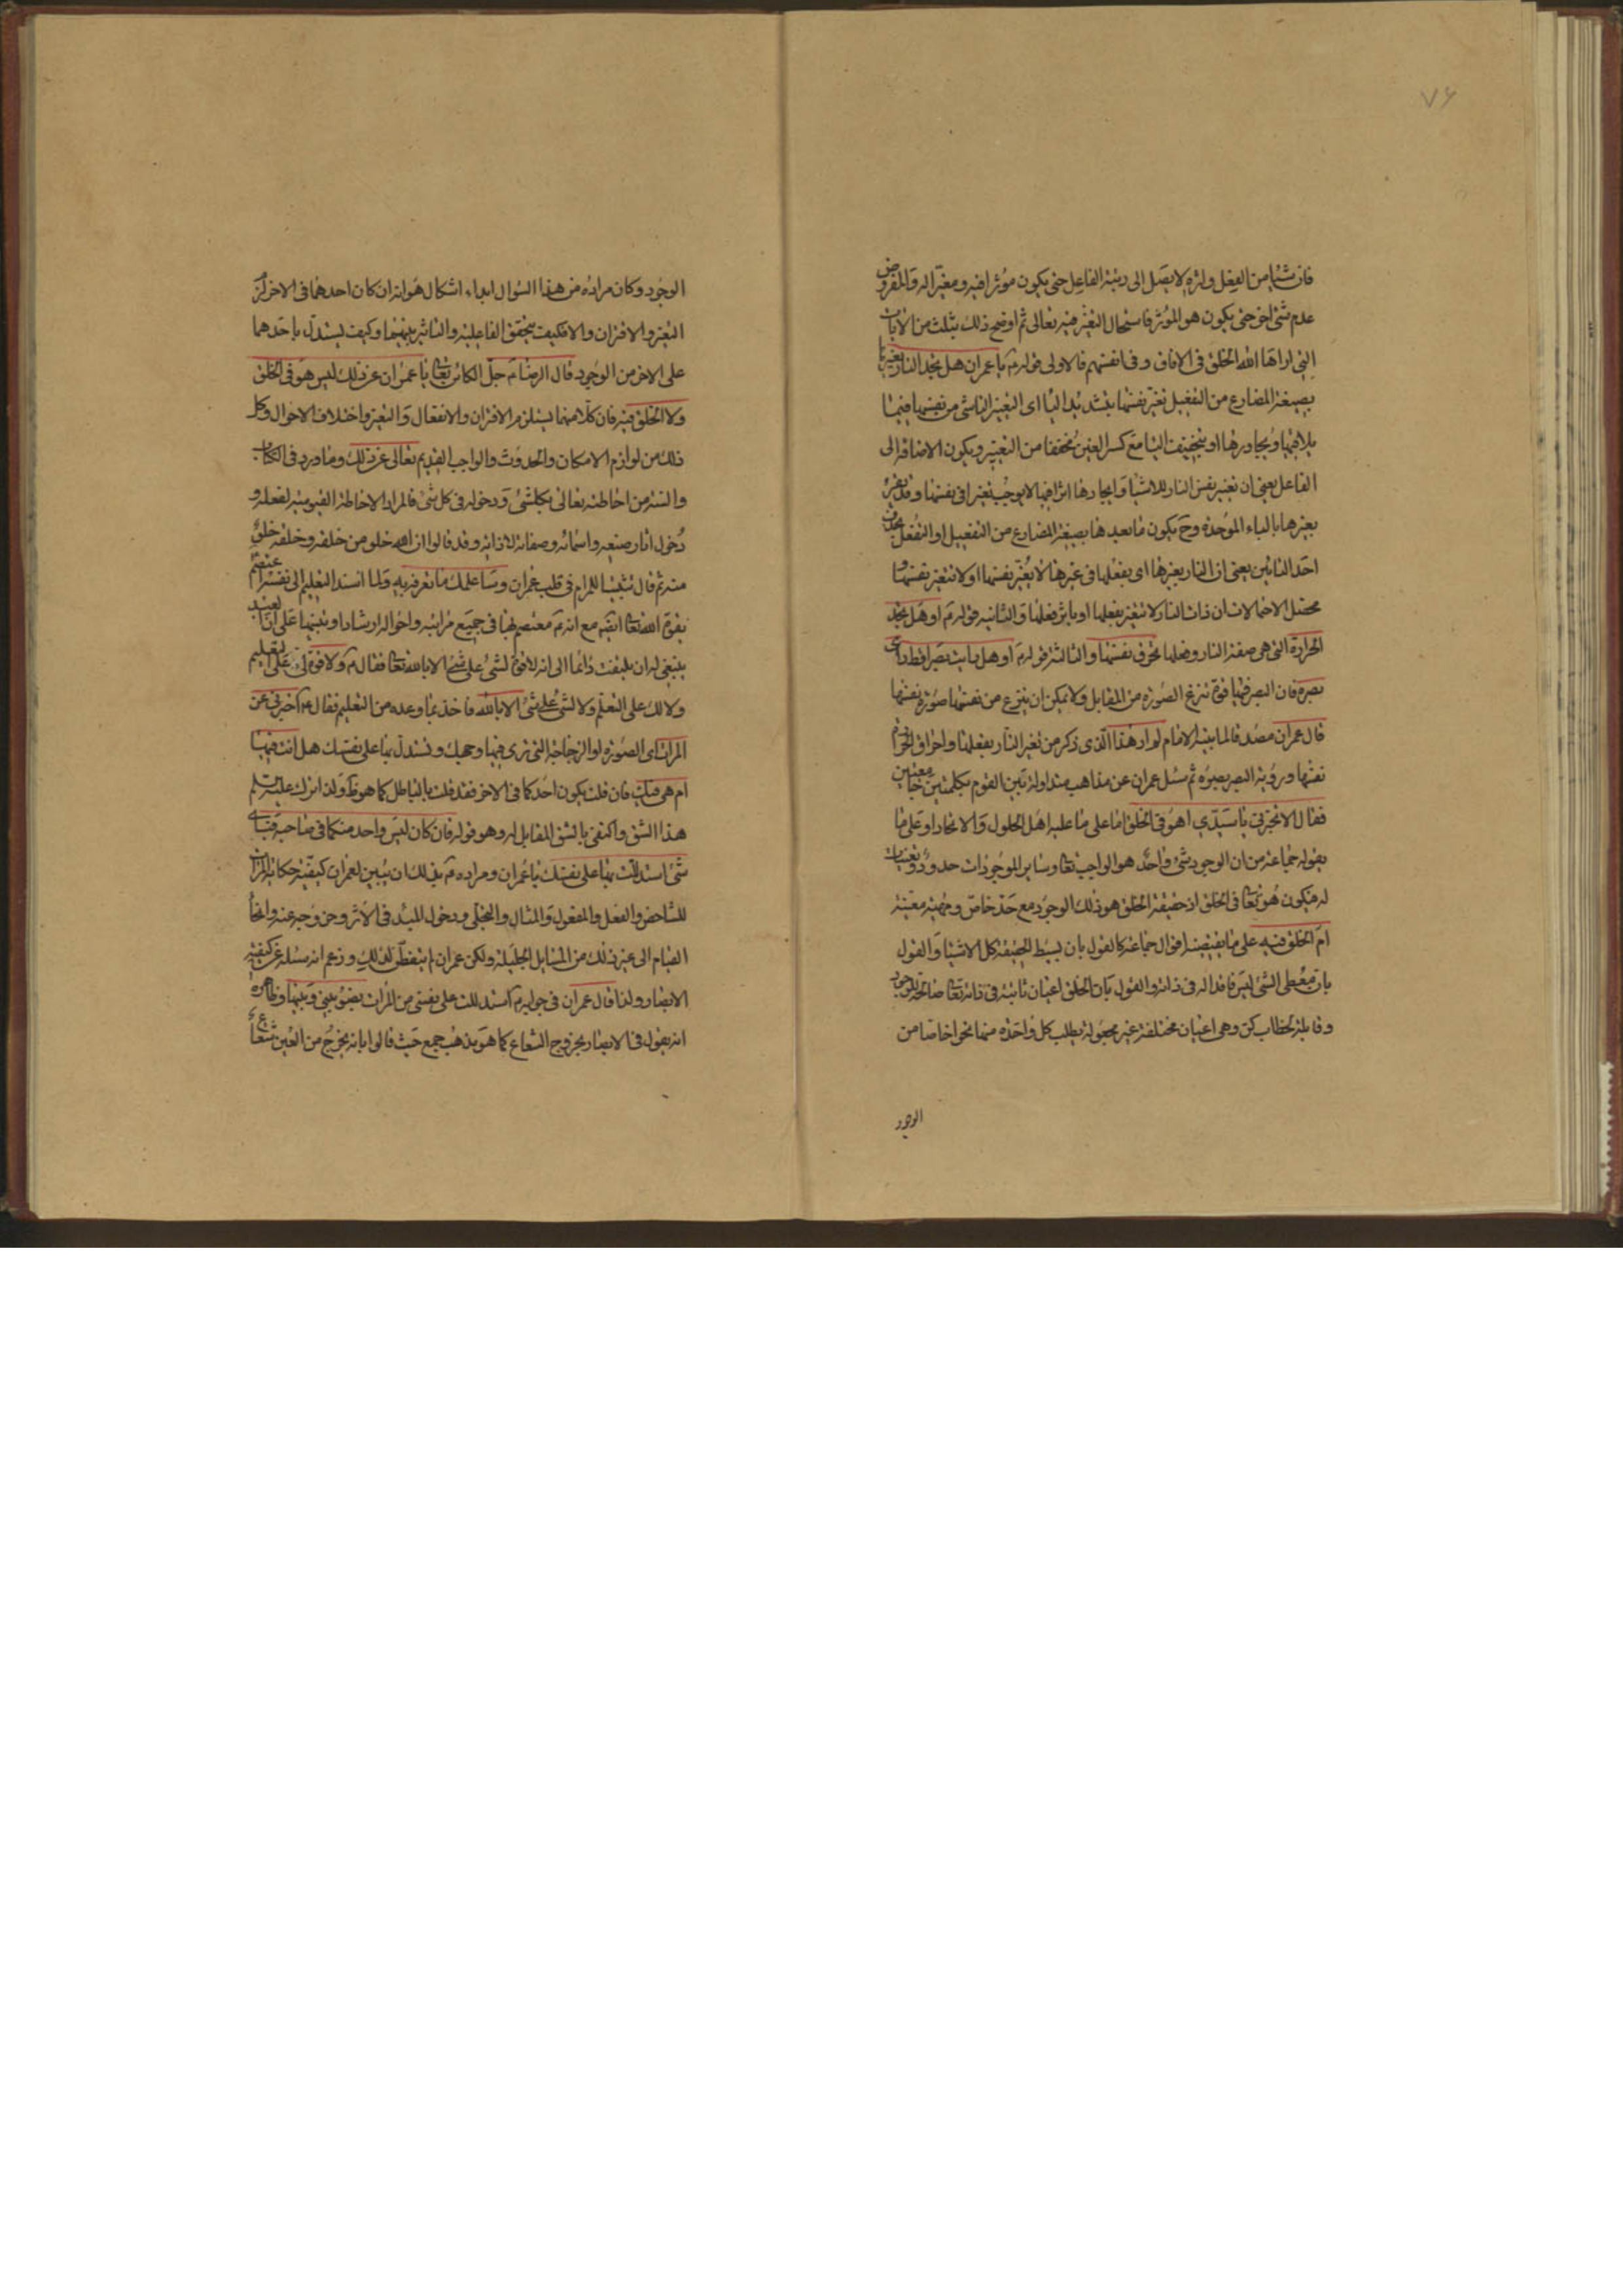 ٧۶
فان شيئا من الفعل واثره لا يصل الى رتبة الفاعل حتى يكون مؤثرا فيه ومغيرا له والمفروض
عدم شئ اخر حتى يكون هو المؤثر فاستحال التغير فيه تعالى ثم اوضح ذلك بثلث من الايات
التى اراها الله الخلق فى الافاق وفى انفسهم فالاولى قوله ع يا عمران هل تجد النار تغيرها
بصيغة المضارع من التفعيل تغير نفسها بتشديد اليا اى التغير الناشى من نفسها فيما
يلاقيها ويجاورها او بتخفيف اليا مع كسر الغين مخففا من التغيير ويكون الاضافة الى
الفاعل يعنى ان تغيير نفس النار للاشيا وايجادها اثرا فيها لا يوجب تغيرا فى نفسها وقد يقرء
بغيرها بالباء الموحدة وح يكون ما بعدها بصيغة المضارع من التفعيل او التفعل بحذف
احد التائين يعنى ان النار بغيرها اى بفعلها فى غيرها لا يغير نفسها او لا تتغير نفسها و
محصل الاحتمالات ان ذات النار لا تتغير بفعلها او باثر فعلها والثانية قوله ع او هل تجد
الحرارة التى هى صفة النار وفعلها تحرق نفسها والثالثة قوله ع او هل رايت بصرا قط راى
بصره فان البصر فيها قوة تنزع الصورة من المقابل ولا يمكن ان ينتزع من نفسها صورة نفسها
قال عمران مصدقا لما بينه الامام لم ار هذا الذى ذكر من تغير النار بفعلها واحراق الحرارة
نفسها ورؤية البصر بصره ثم سئل عمران عن مذاهب متداولة بين القوم بكلمتين جامعتين
فقال الا تخبرنى يا سيدى اهو فى الخلق اما على ما عليه اهل الحلول والاتحاد او على ما
يقوله جماعة من ان الوجود شئ واحد هو الواجب تعالى وساير الموجودات حدود وتعينات
له فيكون هو تعالى فى الخلق اذ حقيقة الخلق هو ذلك الوجود مع حد خاص ومهية معينة
ام الخلق فيه على ما يقتضيه اقوال جماعة كالقول بان بسيط الحقيقة كل الاشيا والقول
بان معطى الشئ ليس فاقدا له فى ذاته والقول بان الخلق اعيان ثابتة فى ذاته تعالى صالحة للوجود
وقابلة لخطاب كن وهى اعيان مختلفة غير مجعولة يطلب كل واحدة منها نحوا خاصا من
الوجود
الوجود وكان مراده من هذا السؤال ابداء اشكال هو انه ان كان احدهما فى الاخر لزم
التغير والاقتران والا فكيف يتحقق الفاعلية والتاثير بينهما وكيف يستدل باحدهما
على الاخر من الوجود قال الرضا ع جل الكائن تعالى يا عمران عن ذلك ليس هو فى الخلق
ولا الخلق فيه فان كلا منهما يستلزم الاقتران والانفعال والتغير واختلاف الاحوال وكل
ذلك من لوازم الامكان والحدوث والواجب القديم تعالى عن ذلك وما ورد فى الكتاب
والسنة من احاطته تعالى بكل شئ ودخوله فى كل شئ فالمراد الاحاطة القيومية لفعله و
دخول اثار صنعه واسمائه وصفاته لا ذاته وقد قالوا ان الله خلو من خلقه وخلقه خلو
منه ثم قال تثبيتا للمرام فى قلب عمران وساعلمك ما تعرفه به ولما اسند التعليم الى نفسه اعتصم
بقوة الله تعالى مع انه ع معتصم بها فى جميع مراتبه واحواله ارشادا وتنبيها على ان العبد
ينبغى له ان يلتفت دائما الى انه لا قوة لشئ على شئ الا بالله تعالى فقال ع ولا قوة لى على التعليم
ولا لك على التعلم ولا لشئ على شئ الا بالله فاخذ بما وعده من التعليم فقال ع اخبرنى عن
المرات اى الصورة او الزجاجة التى ترى فيها وجهك وتستدل بها على نفسك هل انت فيها
ام هى فيك فان قلت يكون احدكما فى الاخر فقد قلت بالباطل كما هو ظ ولذا ترك عليه السلم
هذا الشق واكتفى بالشق المقابل له وهو قوله فان كان ليس واحد منكما فى صاحبه فباى
شئ استدللت بها على نفسك يا عمران ومراده ع بذلك ان يتبين لعمران كيفية حكاية المرات
للشاخص والفعل والمفعول والمثال والتجلى ودخول المبدء فى الاثر وخروجه عنه وانحاء
القيام الى غير ذلك من المسايل الجليلة ولكن عمران لم يتفطن لذلك وزعم انه سئله عن كيفية
الابصار ولذا قال عمران فى جوابه ع استدللت على نفسى من المرات بضوء بينى وبينها وظاهره
انه يقول فى الابصار بخروج الشعاع كما هو مذهب جمع حيث قالوا بانه يخرج من العين شعاع